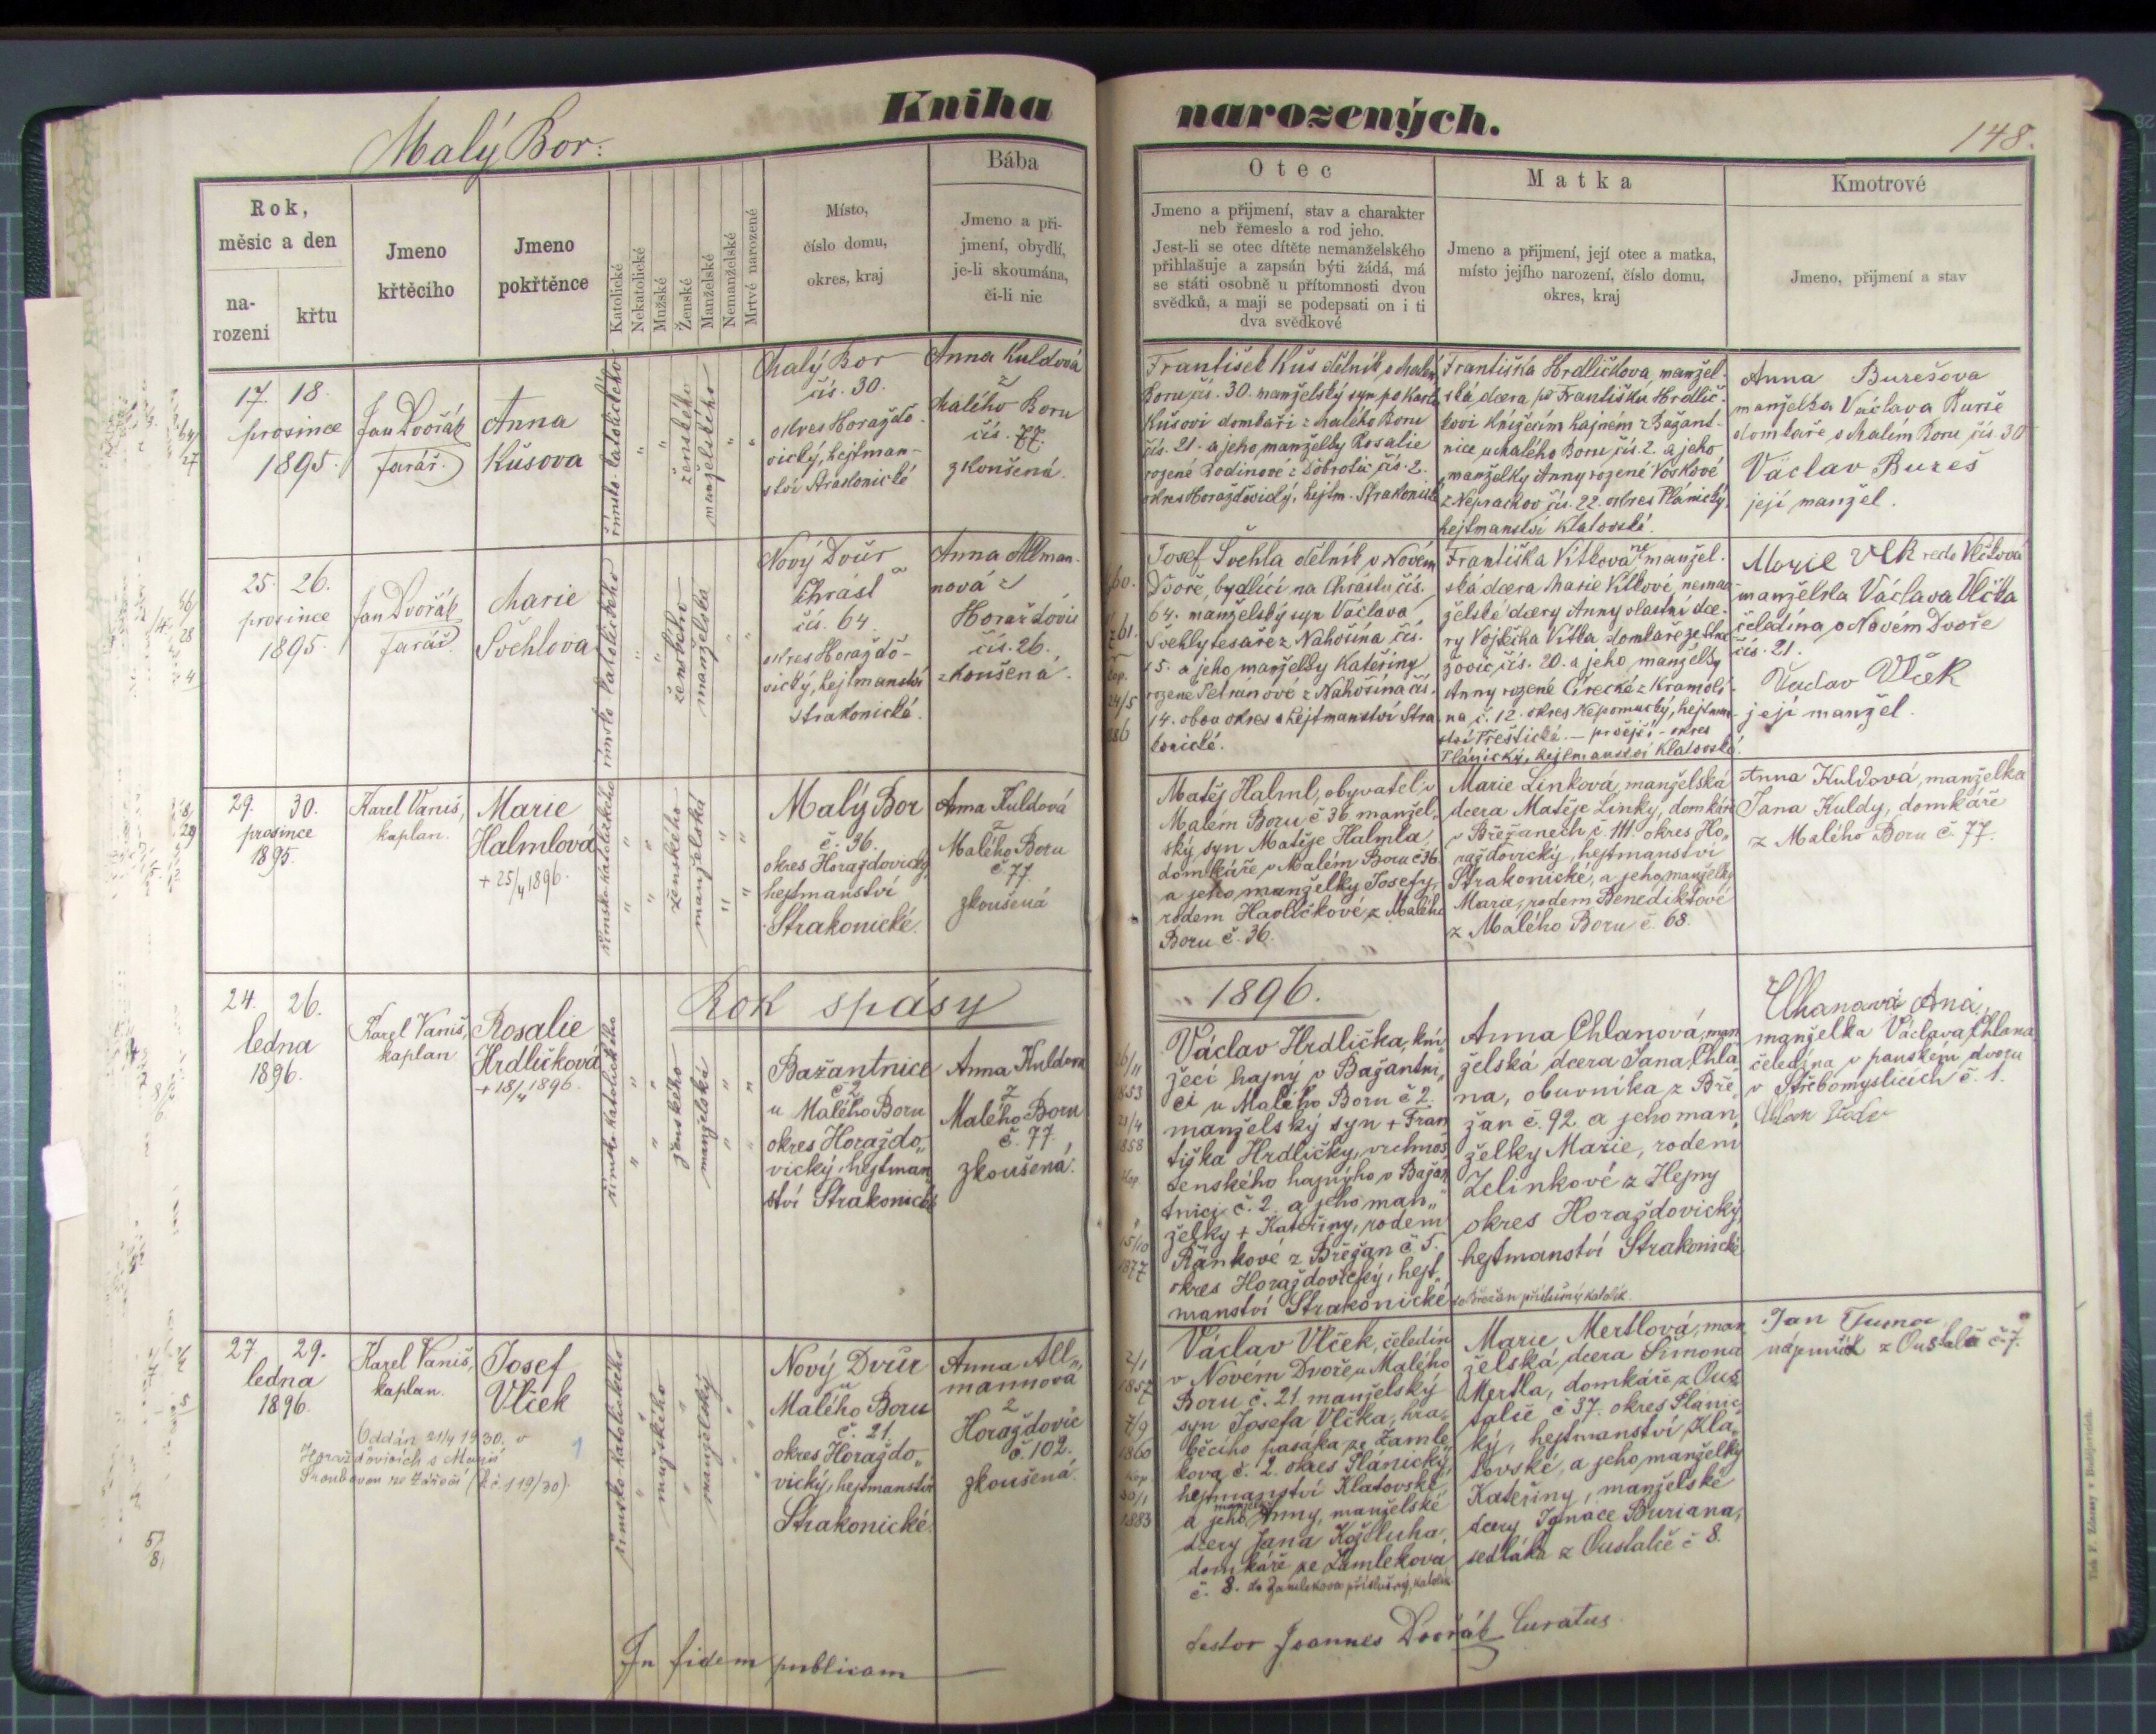 Malý Bor.
Kniha narozených.
148.
Rok,
měsíc a den
na-
rození
křtu
Jmeno
křtěcího
Jmeno
pokřtěnce
Katolické
Nekatolické
Mužské
Ženské
Manželské
Nemanželské
Mrtvé narozené
Místo,
číslo domu,
okres, kraj
Bába
Jmeno a při-
jmení, obydlí,
je-li skoumána,
či-li nic
Otec
Jmeno a přijmení, stav a charakter
neb řemeslo a rod jeho.
Jest-li se otec dítěte nemanželského
přihlašuje a zapsán býti žádá, má
se státi osobně u přítomnosti dvou
svědků, a mají se podepsati on i ti
dva svědkové
Matka
Jmeno a přijmení, její otec a matka,
místo jejího narození, číslo domu,
okres, kraj
Kmotrové
Jmeno, přijmení a stav
17. 18.
prosince
1895.
Jan Dvořák
farář.
Anna
Kůsova
římsko-katolického
ženského
manželského
Malý Bor
čís. 30.
okres Horažďo-
vický, hejtman-
ství Strakonické
Anna Kuldová
z
Malého Boru
čís. 77.
zkoušená.
František Kůs dělník v Malém
Boru čís. 30. manželský syn po Karlu
Kůsovi domkáři z Malého Boru
čís. 21. a jeho manželky Rosalie
rozené z Dobrotic čís. 2.
okres Horažďovický, hejtm. Strakonické
Františka Hrdličkova, manžel-
ská dcera po Františku Hrdlič-
kovi knížecím hajném z Bažant-
nice u Malého Boru čís. 2. a jeho
manželky Anny rozené Voskové
z Neprachov čís. 22. okres Plánický,
hejtmanství Klatovské.
Anna Burešova
manželka Václava Bureše
domkáře v Malém Boru čís. 30
Václav Bureš
její manžel.
25. 26.
prosince
1895.
Jan Dvořák
farář.
Marie
Švehlova
římsko katolického
ženského
manželská
Nový Dvůr
Chrást
čís. 64.
okres Horažďo-
vický, hejtmanství
Strakonické.
Anna Allman-
nová z
Horažďovic
čís. 26.
zkoušená.
Josef Švehla dělník v Novém
Dvoře, bydlící na Chrástu čís.
64. manželský syn Václava
Švehly tesaře z Nahošína čís.
15. a jeho manželky Kateřiny
rozené Petránové z Nahošína čís.
14. obou okres a hejtmanství Stra
konické.
Františka Vítkova manžel-
ská dcera Marie Vítkové, neman-
želské dcery Anny vlastní dce-
ry Vojtěcha Vítka domkáře
čís. 20. a jeho manželky
Anny rozené Cirecké z Kramolí-
na č. 12. okres Nepomucký, hejtman-
ství Přeštické. — prvější - okres
Plánický, hejtmanství Klatovské.
Marie Vlk recte Vlčková
manželka Václava Vlčka
čeladína v Novém Dvoře
čís. 21.
Václav Vlček
její manžel.
29. 30.
prosince
1895.
Karel Vaniš,
kaplan.
Marie
Halmlová
+ 25/4 1896.
římsko-katolického
ženského
manželská
Malý Bor
č. 36.
okres Horažďovický
hejtmanství
Strakonické.
Anna Kuldová
z
Malého Boru
č. 77.
zkoušená
Matěj Halml, obyvatel v
Malém Boru č. 36. manžel„
ský syn Matěje Halmla,
domkáře v Malém Boru č. 36
a jeho manželky Josefy,
rodem Havlíčkové z Malého
Boru č. 36.
Marie Linková, manželská
dcera Matěje Linky, domkáře
v Břežanech č. 111. okres Ho„
ražďovický, hejtmanství
Strakonické, a jeho manželky
Marie, rodem Benediktové
z Malého Boru č. 68.
Anna Kuldová, manželka
Jana Kuldy, domkáře
z Malého Boru č. 77.
Rok spásy 1896.
24. 26.
ledna
1896.
Karel Vaniš,
kaplan
Rosalie
Hrdličková
+ 18/4 1896.
římsko katolického
ženského
manželská
Bažantnice
č 2
u Malého Boru
okres Horažďo„
vický, hejtman
ství Strakonické
Anna Kuldova
z
Malého Boru
č. 77.
zkoušená.
26/11
1853
21/4
1858
Kop.
15/10
1877
Václav Hrdlička, kní„
žecí hajný v Bažantni„
ci u Malého Boru č 2.
manželský syn + Fran
tiška Hrdličky, vrchnos
tenského hajného v Bažan
tnici č. 2. a jeho man„
želky + Kateřiny, rodem
Řánkové z Břežan č. 5.
okres Horažďovický, hejt„
manství Strakonické
do Břežan příslušný katolík.
Anna Chlanová, man
želská dcera Jana Chla
na, obuvníka z Bře
žan č. 92 a jeho man„
želky Marie, rodem
Zelinkové z Hejny
okres Horažďovický,
hejtmanství Strakonické
Chanavá Ana,
manželka Václava Chlana
čeledína v panském dvoru
v Střebomyslicích č. 1.
27. 29.
ledna
1896.
Karel Vaniš,
kaplan.
Josef
Vlček
Oddán 21/4 1930. v
Horažďovicích s Marií
(k č. 119/30).
1
římsko katolického
mužského
manželský
Nový Dvůr
u
Malého Boru
č. 21.
okres Horažďo„
vický, hejtmanství
Strakonické.
Anna All„
mannová
z
Horažďovic
č. 102.
zkoušená.
2/1
1857
7/9
1860
Kop.
30/1
1883
Václav Vlček, čeledín
v Novém Dvoře u Malého
Boru č. 21 manželský
syn Josefa Vlčka, hra„
běcího pasáka ze Zamle„
kova č. 2. okres Plánický
hejtmanství Klatovské,
a jeho manželky Anny, manželské
dcery Jana Koželuha,
domkáře ze Zamlekova
č. 8. do Zamlekova příslušný, katolík.
Marie Mertlová, man
želská dcera Šimona
Mertla, domkáře z Ous
talče č 37. okres Plánic„
ký, hejtmanství Kla„
tovské, a jeho manželky
Kateřiny, manželské
dcery Ignáce Buriana,
sedláka z Oustalče č 8.
Jan Tuma
nápravník z Oustalče č 7.
In fidem publicam
testor Joannes Dvořák Curatus
Tisk F. Zdarssy v Budějovicích.